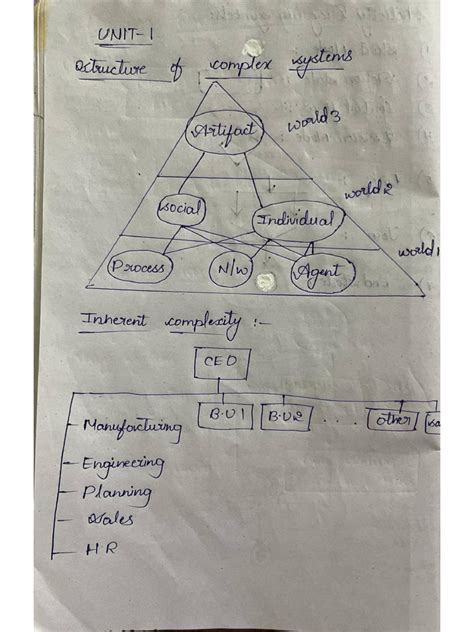 UNIT-1
Structure of complex systems
Artifact
world 3
Social
Individual
world 2
Process
N/W
Agent
world 1
Inherent complexity :-
CEO
B.U1 B.U2 . . . Other
Manufacturing
Engineering
Planning
Sales
HR